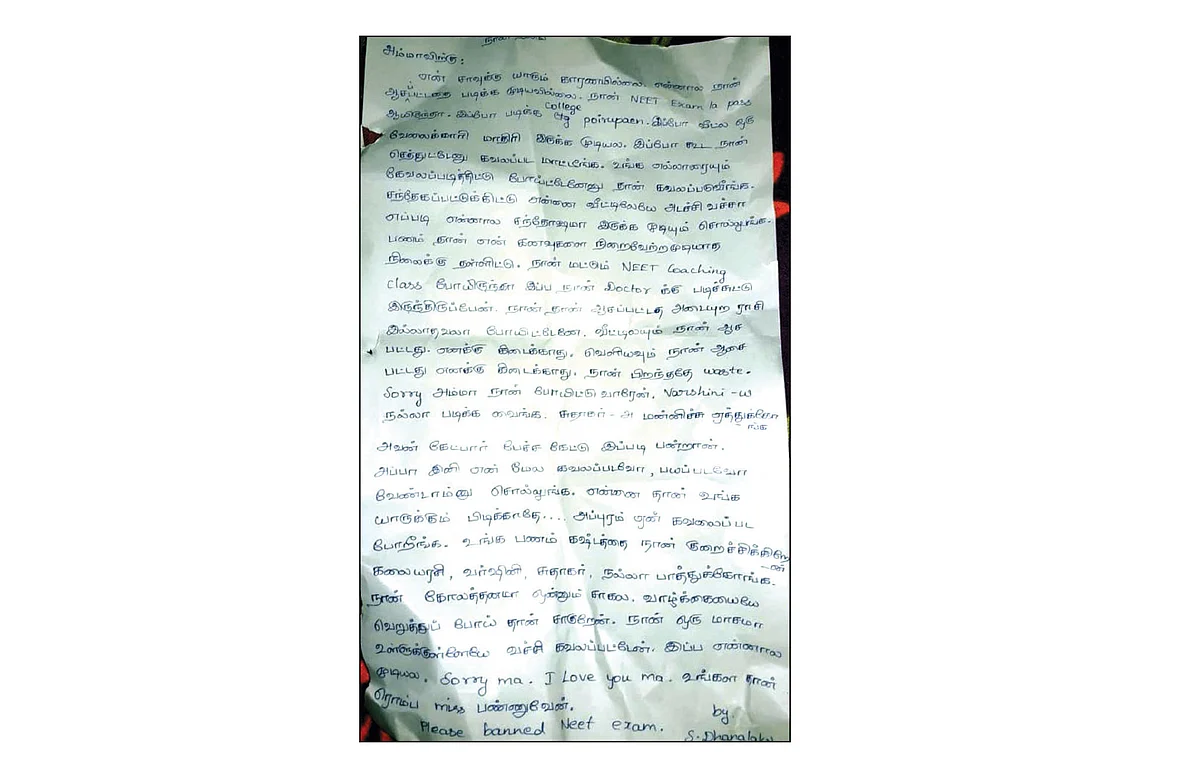 அம்மாவிற்கு :
என் சாவுக்கு யாரும் காரணமில்லை. என்னால நான்
ஆசப்பட்டதை படிக்க முடியவில்லை. நான் NEET Exam la pass
ஆயிருந்தா. இப்போ படிக்க College poirupaen. இப்போ வீட்ல ஒரு
வேலைக்காரி மாதிரி இருக்க முடியல. இப்போ கூட நான்
செத்துட்டேனு கவலப்பட மாட்டீங்க. உங்க எல்லாரையும்
கேவலப்படித்திட்டு போய்ட்டேனேனு தான் கவலப்படுவீங்க.
சந்தேகப்பட்டுக்கிட்டு என்னை வீட்டிலேயே அடச்சி வச்சா
எப்படி என்னால சந்தோஷமா இருக்க முடியும் சொல்லுங்க.
பணம் தான் என் கனவுகளை நிறைவேற்றமுடியாத
நிலைக்கு தள்ளிட்டு. நான் மட்டும் NEET Coaching
Class போயிருந்தா இப்ப நான் Doctor க்கு படிச்சுட்டு
இருந்திருப்பேன். நான் தான் ஆசப்பட்டத அடையுற ராசி
இல்லாதவளா போயிட்டேனே. வீட்டிலயும் நான் ஆச
பட்டது எனக்கு கிடைக்காது. வெளியவும் நான் ஆசை
பட்டது எனக்கு கிடைக்காது. நான் பிறந்ததே waste.
Sorry அம்மா நான் போயிட்டு வாரேன். Varshini -ய
நல்லா படிக்க வைங்க. சுதாகர் - அ மன்னிச்சு ஏத்துக்கோங்க
அவன் கேட்பார் பேச்ச கேட்டு இப்படி பன்றான்.
அப்பா இனி என் மேல கவலப்படவோ, பயப்படவோ
வேண்டாம்னு சொல்லுங்க. என்னை தான் உங்க
யாருக்கும் பிடிக்காதே.... அப்புரம் ஏன் கவலைப்பட
போறீங்க. உங்க பணம் கஷ்டத்தை நான் குறைச்சிக்கிறேன்
கலையரசி, வர்ஷினி, சுதாகர், நல்லா பாத்துக்கோங்க.
நான் கோலத்தனமா ஒன்னும் சாகல. வாழ்க்கையையே
வெறுத்துப் போய் தான் சாகுறேன். நான் ஒரு மாசமா
உள்ளுக்குள்ளேயே வச்சி கவலப்பட்டேன். இப்ப என்னால
முடியல. Sorry ma. I Love you ma. உங்கள தான்
ரொம்ப miss பண்ணுவேன்.
by.
Please banned Neet exam.